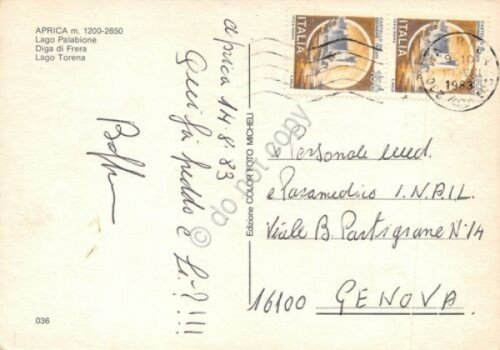 APRICA m. 1200-2650
Lago Palabione
Diga di Frera
Lago Torena
Aprica 14.8.83
Qui fa freddo e
Lì?!!!
Edizione COLOR FOTO MICHELI
do not copy
ITALIA
ITALIA
1983
e Personale med.
e Paramedico I.N.A.I.L.
Viale B. Partigiane N° 14
16100 GENOVA
036